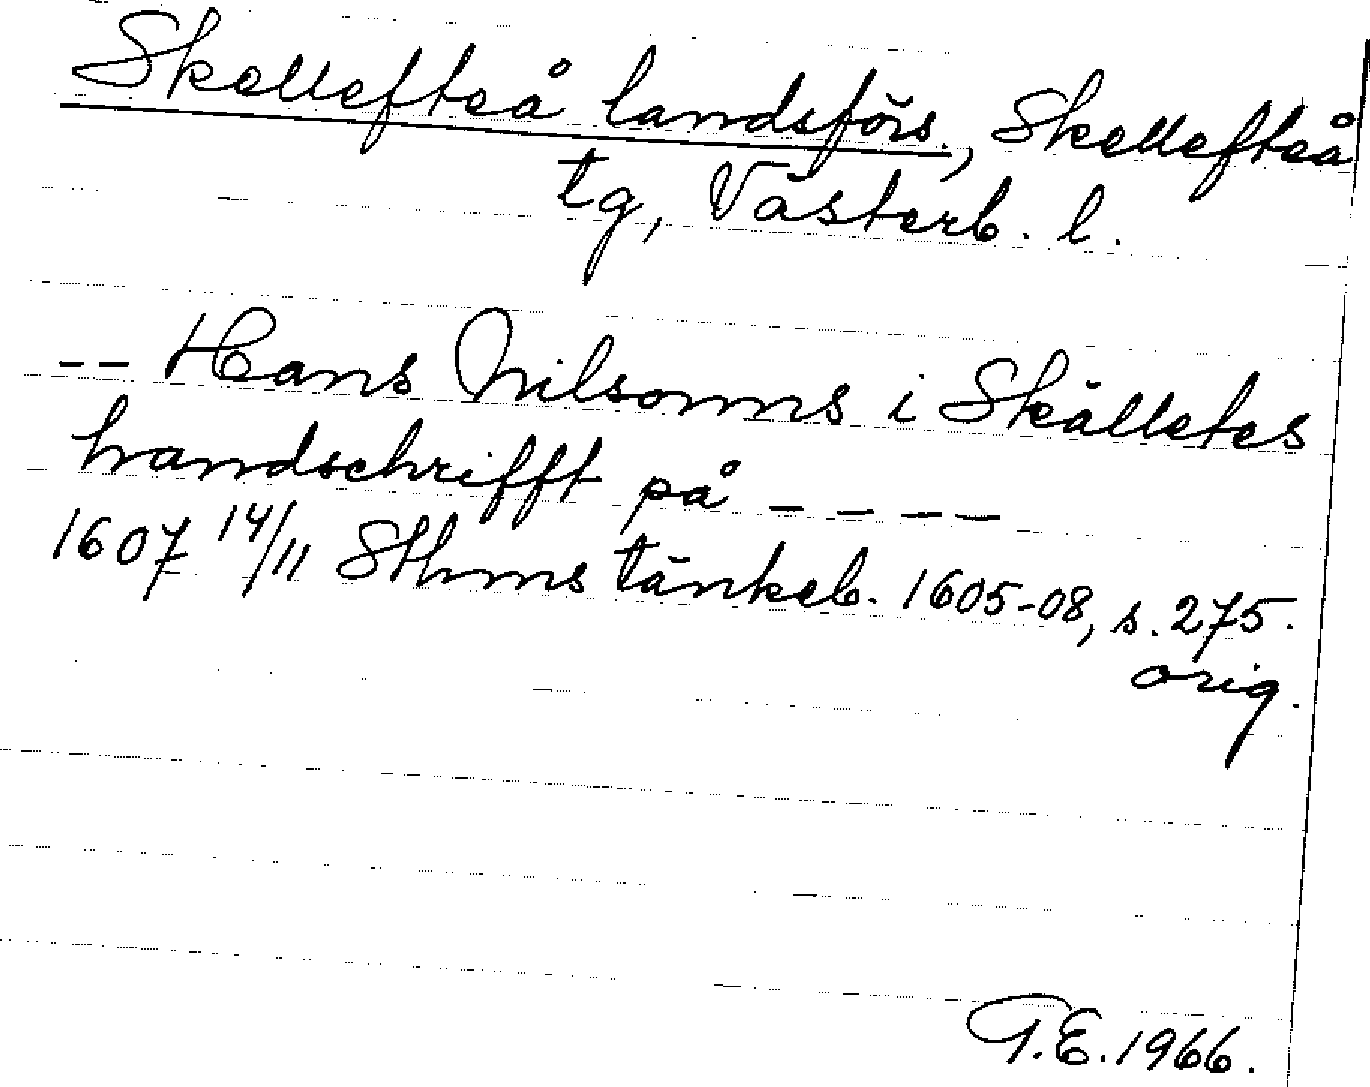 Skellefteå landsförs., Skellefteå
tg, Västerb. l.
-- Hans Nilsonns i Skälletes
handschrifft på ----
1607 14/11 Sthms tänkeb. 1605-08, s. 275.
orig.
T.E. 1966.